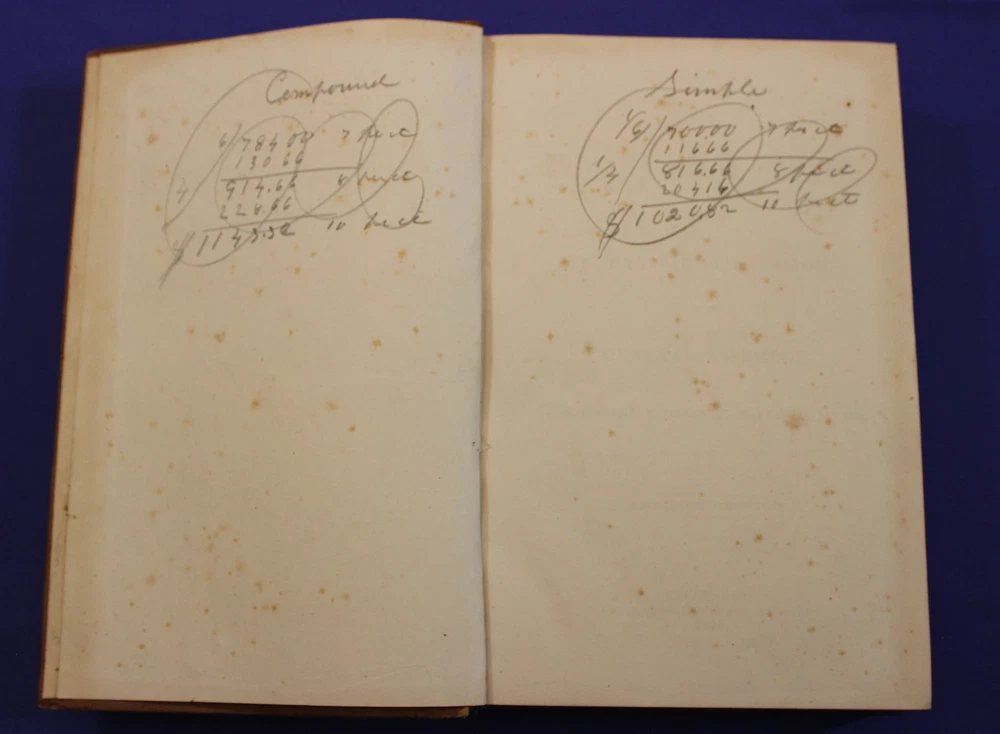 Compound
6/ 784 00 7
130 66
914.66 8
228.66
$ 1143.32 10
Simple
1/6/ 700.00 7
116.66
816.66 8
1/4
204 16
$ 1020 82 10